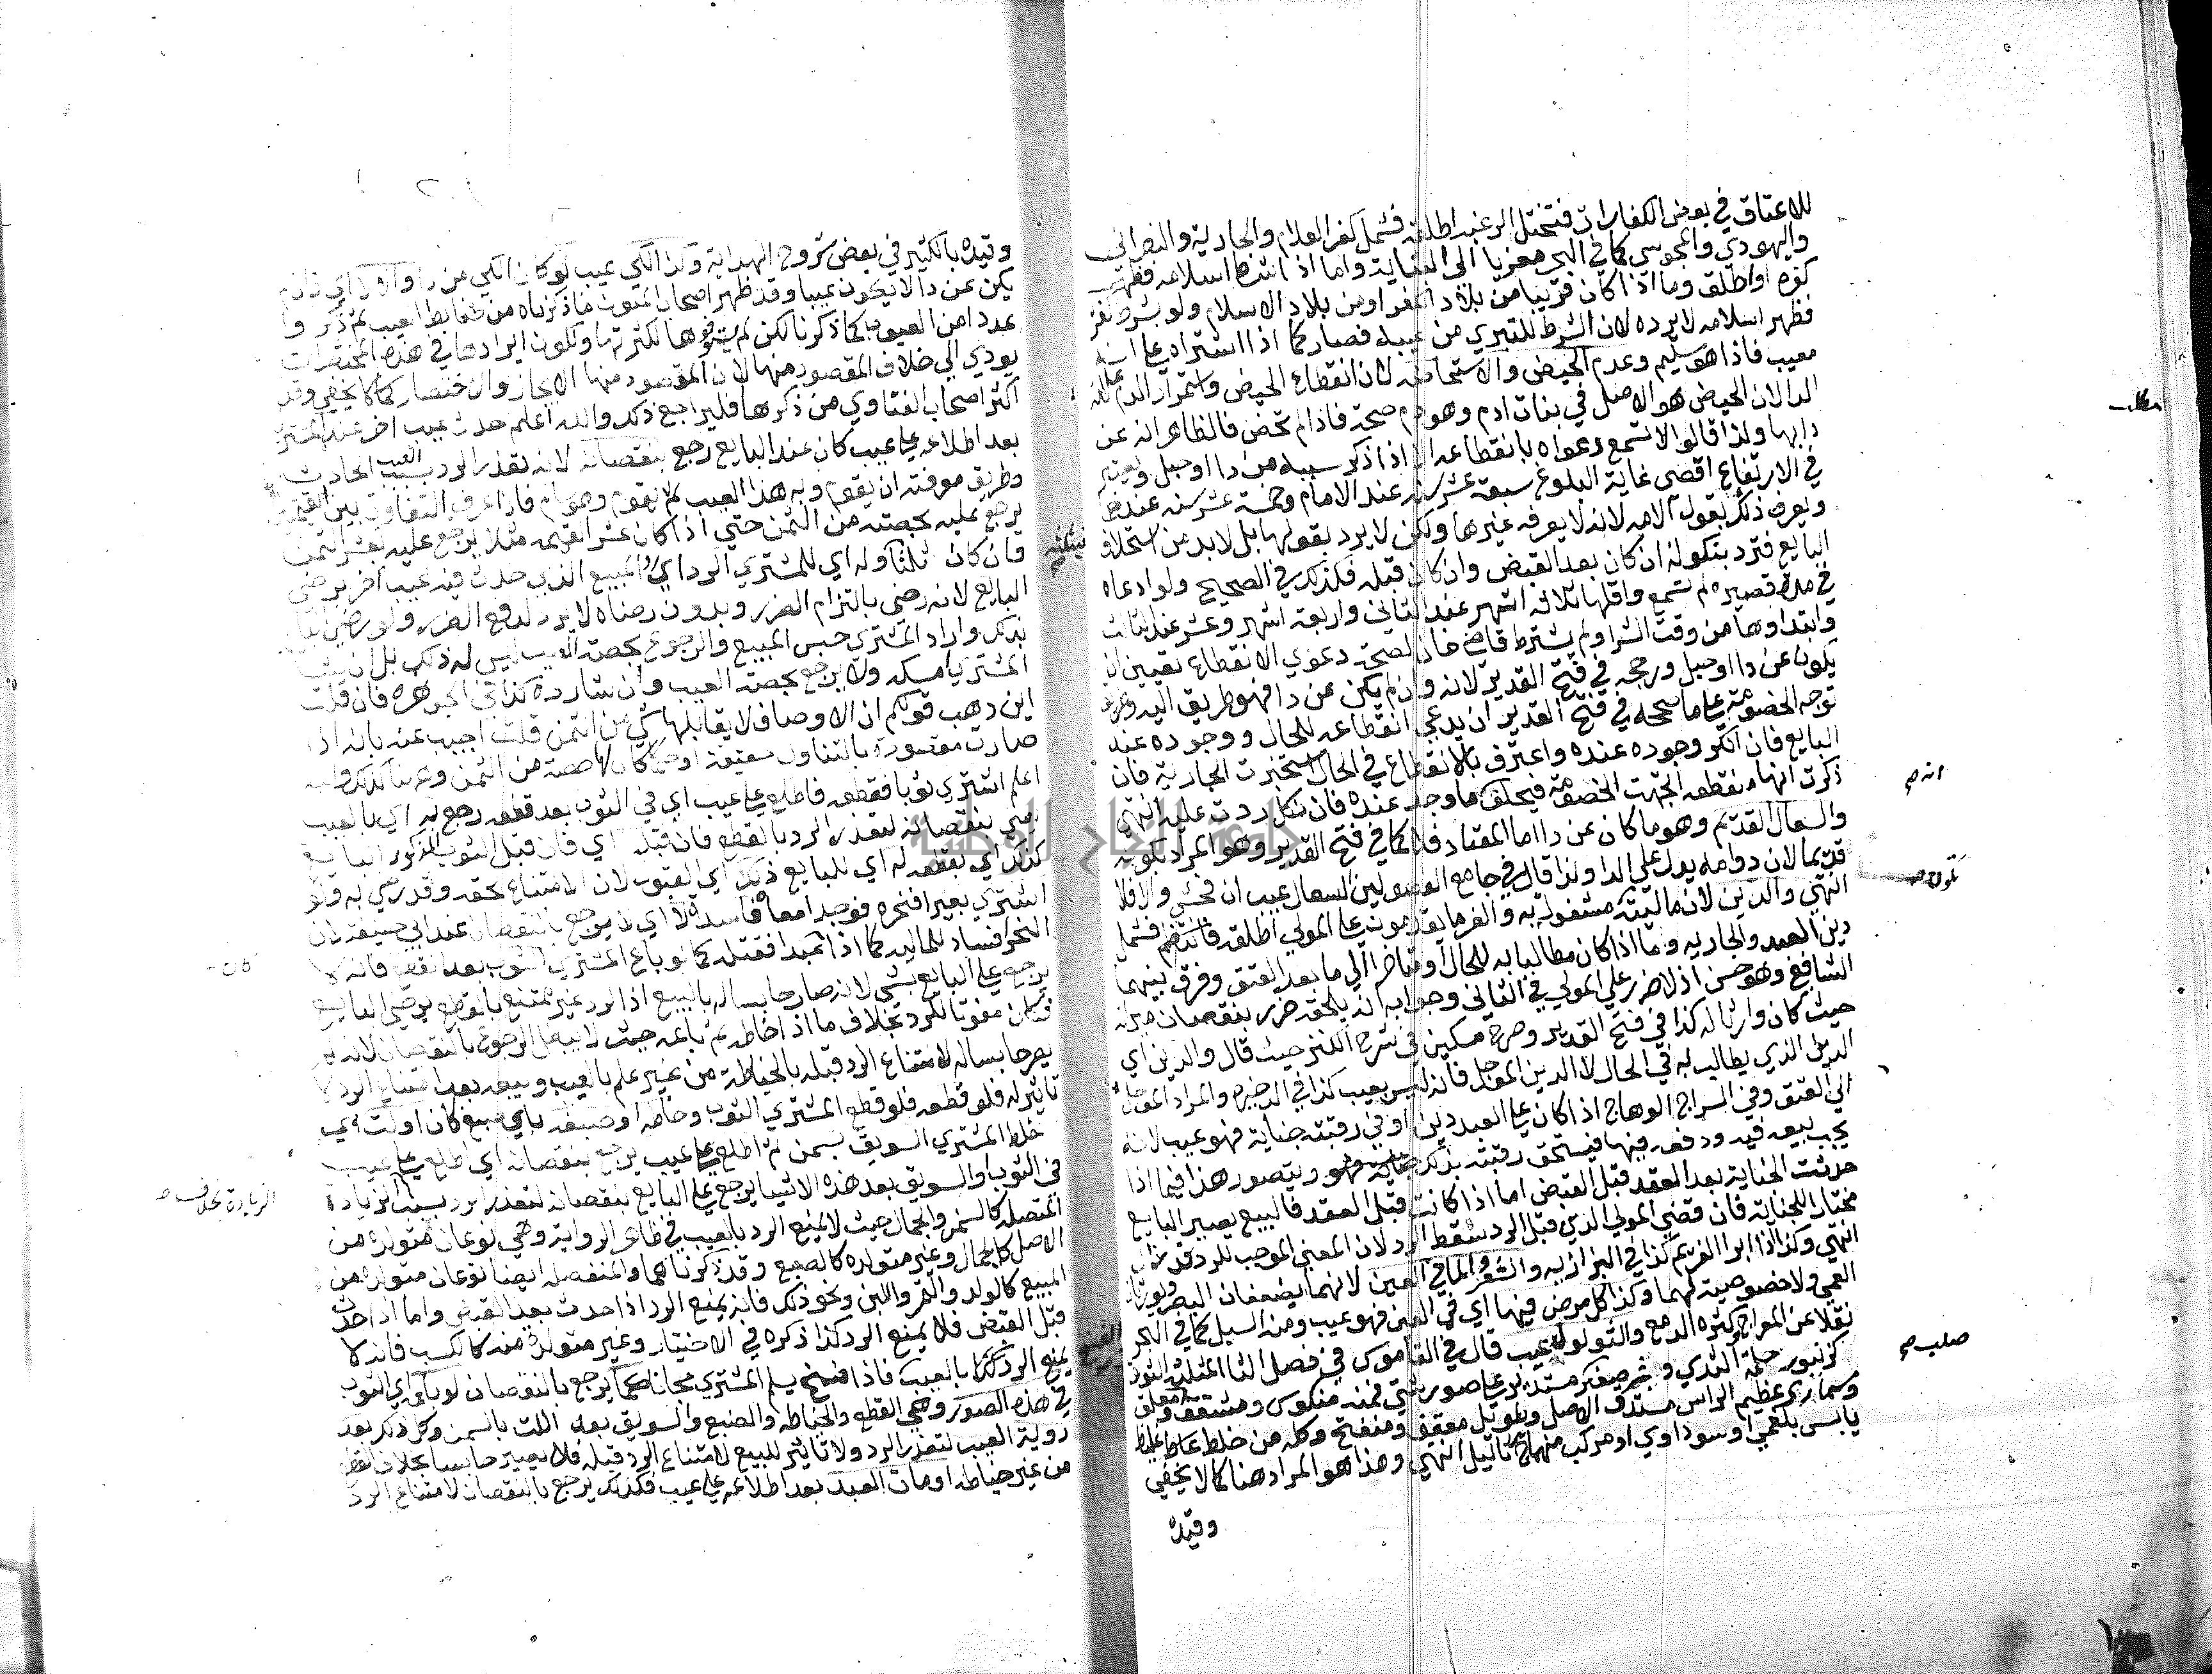 للاعتاق في بعض الكفارات فتختل الرغبة اطلقه فشمل كفر الغلام والجارية والنصراني
واليهودي والمجوسي كما في البحر معزيا الى العناية واما اذا اشترط اسلامه فظهر
كفره او اطلق وما اذا كان قريبا من بلاد الكفر او من بلاد الاسلام ولو بشرط كفر
فظهر اسلامه لا يرده لان الشرط للتبري من عيبه فصار كما اذا اشتراه على انه
معيب فاذا هو سليم وعدم الحيض والاستحاضة لان انقطاع الحيض واستمرار الدم علامة
الدا لان الحيض هو الاصل في بنات ادم وهو دم صحة فاذا لم تحض فالظاهر انه عن
دا بها ولذا قالوا لا تسمع دعواه بانقطاعه الا اذا ذكر سببه من دا او حبل ويعتبر
في الارتفاع اقصى غاية البلوغ سبعة عشر سنة عند الامام وخمسة عشر سنة عندهما
ويعرف ذلك بقول الامة لانه لا يعرفه غيرها ولكن لا يرد بقولها بل لابد من استحلاف
البايع فترد بنكوله ان كان بعد القبض وان كان قبله فكذلك في الصحيح ولو ادعاه
في مدة قصيره لم تسمع واقلها ثلاثة اشهر عند الثاني واربعة اشهر وعشر عند الثالث
وابتداوها من وقت الشرا ولم يشترط قاضي خان لصحة دعوي الانقطاع تعيين ان
يكون عن دا او حبل ورجحه في فتح القدير لانه وان لم يكن عن دا فهو طريق اليه
توجه الخصومة على ما صححه في فتح القدير ان يدعي انقطاعه للحال ووجوده عند
البايع فان انكر وجوده عنده واعترف بالانقطاع في الحال استخبرت الجارية فان
ذكرت انها منقطعه اتجهت الخصومة فيحلف ما وجد عنده فان نكل ردت عليه انتهي
والسعال القديم وهو ما كان عن دا اما المعتاد فلا كما في فتح القدير وهو المراد بكونه
قديما لان دوامه يدل علي الدا ولذا قال في جامع الفصولين السعال عيب ان فحش والا فلا
انتهي والدين لان ماليته مشغوله به والغرما يقدمون على المولي اطلقه فشمل
دين العبد والجاريه وما اذا كان مطالبا به للحال او متاخرا الي ما بعد العتق وفرق بينهما
الشافعي وهو حسن اذ لا ضرر علي المولي في الثاني وجوابه انه يلحقه ضرر بنقصان ميراثه
حيث كان وارثا له كذا في فتح القدير وصرح مسكين في شرح الكنز حيث قال والدين اي
الدين الذي يطالب به في الحال لا الدين المؤجل فانه ليس بعيب كذا في الذخيره والمراد المؤجل
الي العتق وفي السراج الوهاج اذا كان على العبد دين او في رقبته جناية فهو عيب لانه
يجب بيعه فيه ودفعه فيها فيستحق رقبته بذلك ويتصور هذا فيما اذا
حدثت الجناية بعد العقد قبل القبض اما اذا كانت قبل العقد فالبيع يصير البايع
مختار اللجناية فان قضي المولي الدين قبل الرد سقط الرد لان المعني الموجب للرد قد زال
انتهي وكذا اذا ابرا الغريم كذا في البزازيه والشعر والما في العين لانهما يضعفان البصر
العمي ولا خصوصية لهما وكذا كل مرض فيها اي في العين فهو عيب ومنه السبل كما في البحر
نقلا عن المعراج وكثره الدمع والثولول عيب قال في القاموس في فصل الثا المثلثة الثولول
كزنبور حلمة الثدي وبثر صغير مستدير على صور شتي فمنه منكوس ومتشقق ومعلق
ومسماري عظيم الراس مستدق الاصل وطويل معقف ومنفتح وكله من خلط غليظ
يابس بلغمي او سوداوي او مركب منهما ج ثاليل انتهي وهذا هو المراد هنا كما لا يخفي
وقيده
انه صح
صلب صح
وقيده بالكثير في بعض شروح الهداية وكذا الكي عيب لو كان الكي من دا والا
يكن عن دا لا يكون عيبا وقد ظهر اصحاب المتون ما ذكرناه من ضابط العيب ثم ذكروا
عددا من العيوب كما ذكرنا لكن لم يستوفوها لكثرتها وتكون ايرادها في هذه المختصرات
يودي الي خلاف المقصود منها لان المقصود منها الايجاز والاختصار كما لا يخفي وقد
اكثر اصحاب الفتاوي من ذكرها فليراجع ذلك والله اعلم حدث عيب اخر عند المشتري
بعد اطلاعه على عيب كان عند البايع رجع بنقصانه لانه تعذر الرد بسبب العيب الحادث
وطريق معرفته ان يقوم وبه هذا العيب ثم يقوم وهو سالم فاذا عرف التفاوت بين القيمتين
يرجع عليه بحصته من الثمن حتي اذا كان عشر القيمة مثلا يرجع عليه بعشر الثمن
فان كان ثلثا وله اي للمشتري الرد اي المبيع الذي حدث فيه عيب اخر برضي
البايع لانه رضي بالتزام الضرر وبدون رضاه لا يرد لدفع الضرر ولو رضي البايع
بذلك واراد المشتري حبس المبيع والرجوع بحصة العيب ليس له ذلك بل ان شا
المشتري امسكه ولا يرجع بحصة العيب وان شا رده كذا في الجوهرة فان قلت
اين ذهب قولكم ان الاوصاف لا يقابلها شي من الثمن قلت اجيب عنه بانه اذا
صارت مقصودة بالتناول حقيقة او حكما كان لها حصة من الثمن وهنا كذلك والله
اعلم اشتري ثوبا فقطعه فاطلع على عيب اي في الثوب بعد قطعه رجع به اي بالعيب
بنقصانه لتعذر الرد بالقطع فان قبله اي فان قبل الثوب المذكور البايع
كذلك اي بقطعه له اي للبايع ذلك اي القبول لان الامتناع لحقه وقد رضي به ولو
اشتري بعيرا فنحره فوجد امعاه فاسده لا اي لا يرجع بالنقصان عند ابي حنيفة لان
النحر افساد للماليه كما لو باع المشتري الثوب بعد القطع فانه لا
يرجع على البايع بشي لانه صار حابسا له بالبيع اذ الرد غير ممتنع بالقطع برضي البايع
فكان مفوتا للرد بخلاف ما اذا خاطه ثم باعه حيث لا يبطل الرجوع بالنقصان لانه لم
يصر حابسا له لامتناع الرد قبله بالخياطة من غير علم بالعيب وبيعه بعد امتناع الرد لا
تاثير له فلو قطعه فلو قطع المشتري الثوب وخاطه او صبغه باي صبغ كان او لت اي
خلط المشتري السويق بسمن ثم اطلع على عيب يرجع بنقصانه اي اطلع على عيب
في الثوب او السويق بعد هذه الاشيا يرجع على البايع بنقصانه لتعذر الرد بسبب الزيادة
المتصله كالسمن والجمال حيث لا يمنع الرد بالعيب في ظاهر الرواية وهي نوعان متولده من
الاصل كالجمال وغير متولده كالصبغ وقد ذكرناهما والمنفصله ايضا نوعان متولده من
المبيع كالولد والثمر واللبن ونحو ذلك فانه يمنع الرد اذا حدث بعد القبض واما اذا حدث
قبل القبض فلا يمنع الرد كذا ذكره في الاختيار وغير متولدة منه كالكسب فانه لا
يمنع الرد بالعيب فاذا فسخ يسلم المشتري مجانا كما يرجع بالنقصان لو باعه اي الثوب
في هذه الصور وهي القطع والخياطه والصبغ والسويق بعد اللت بالسمن وكل ذلك بعد
روية العيب لتعذر الرد ولا تاثير للبيع لامتناع الرد قبله فلا يصير حابسا بخلاف القطع
من غير خياطه او مات العبد بعد اطلاعه على عيب فكذلك يرجع بالنقصان لامتناع الرد
كان
الزيادة بخلاف صح